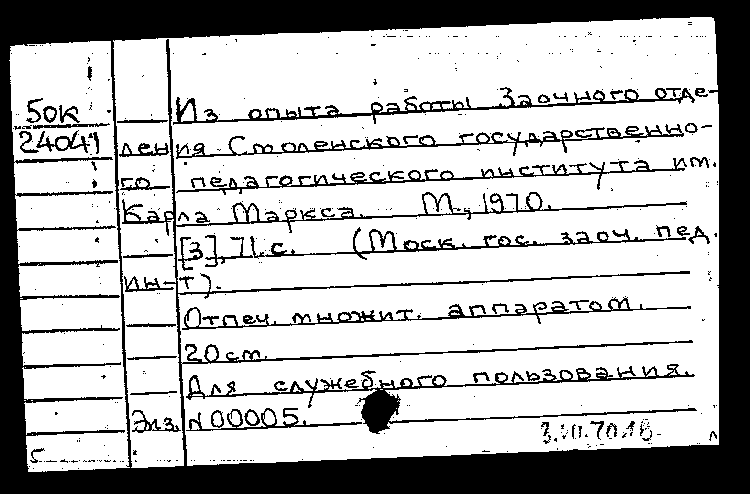 50к
24041
Из опыта работы Заочного отде-
ления Смоленского государственно-
го педагогического института им.
Карла Маркса. М., 1970.
[3], 71.с. (Моск. гос. заоч. пед.
ин-т).
Отпеч. множит. аппаратом.
20см.
Для служебного пользования.
Экз. N00005.